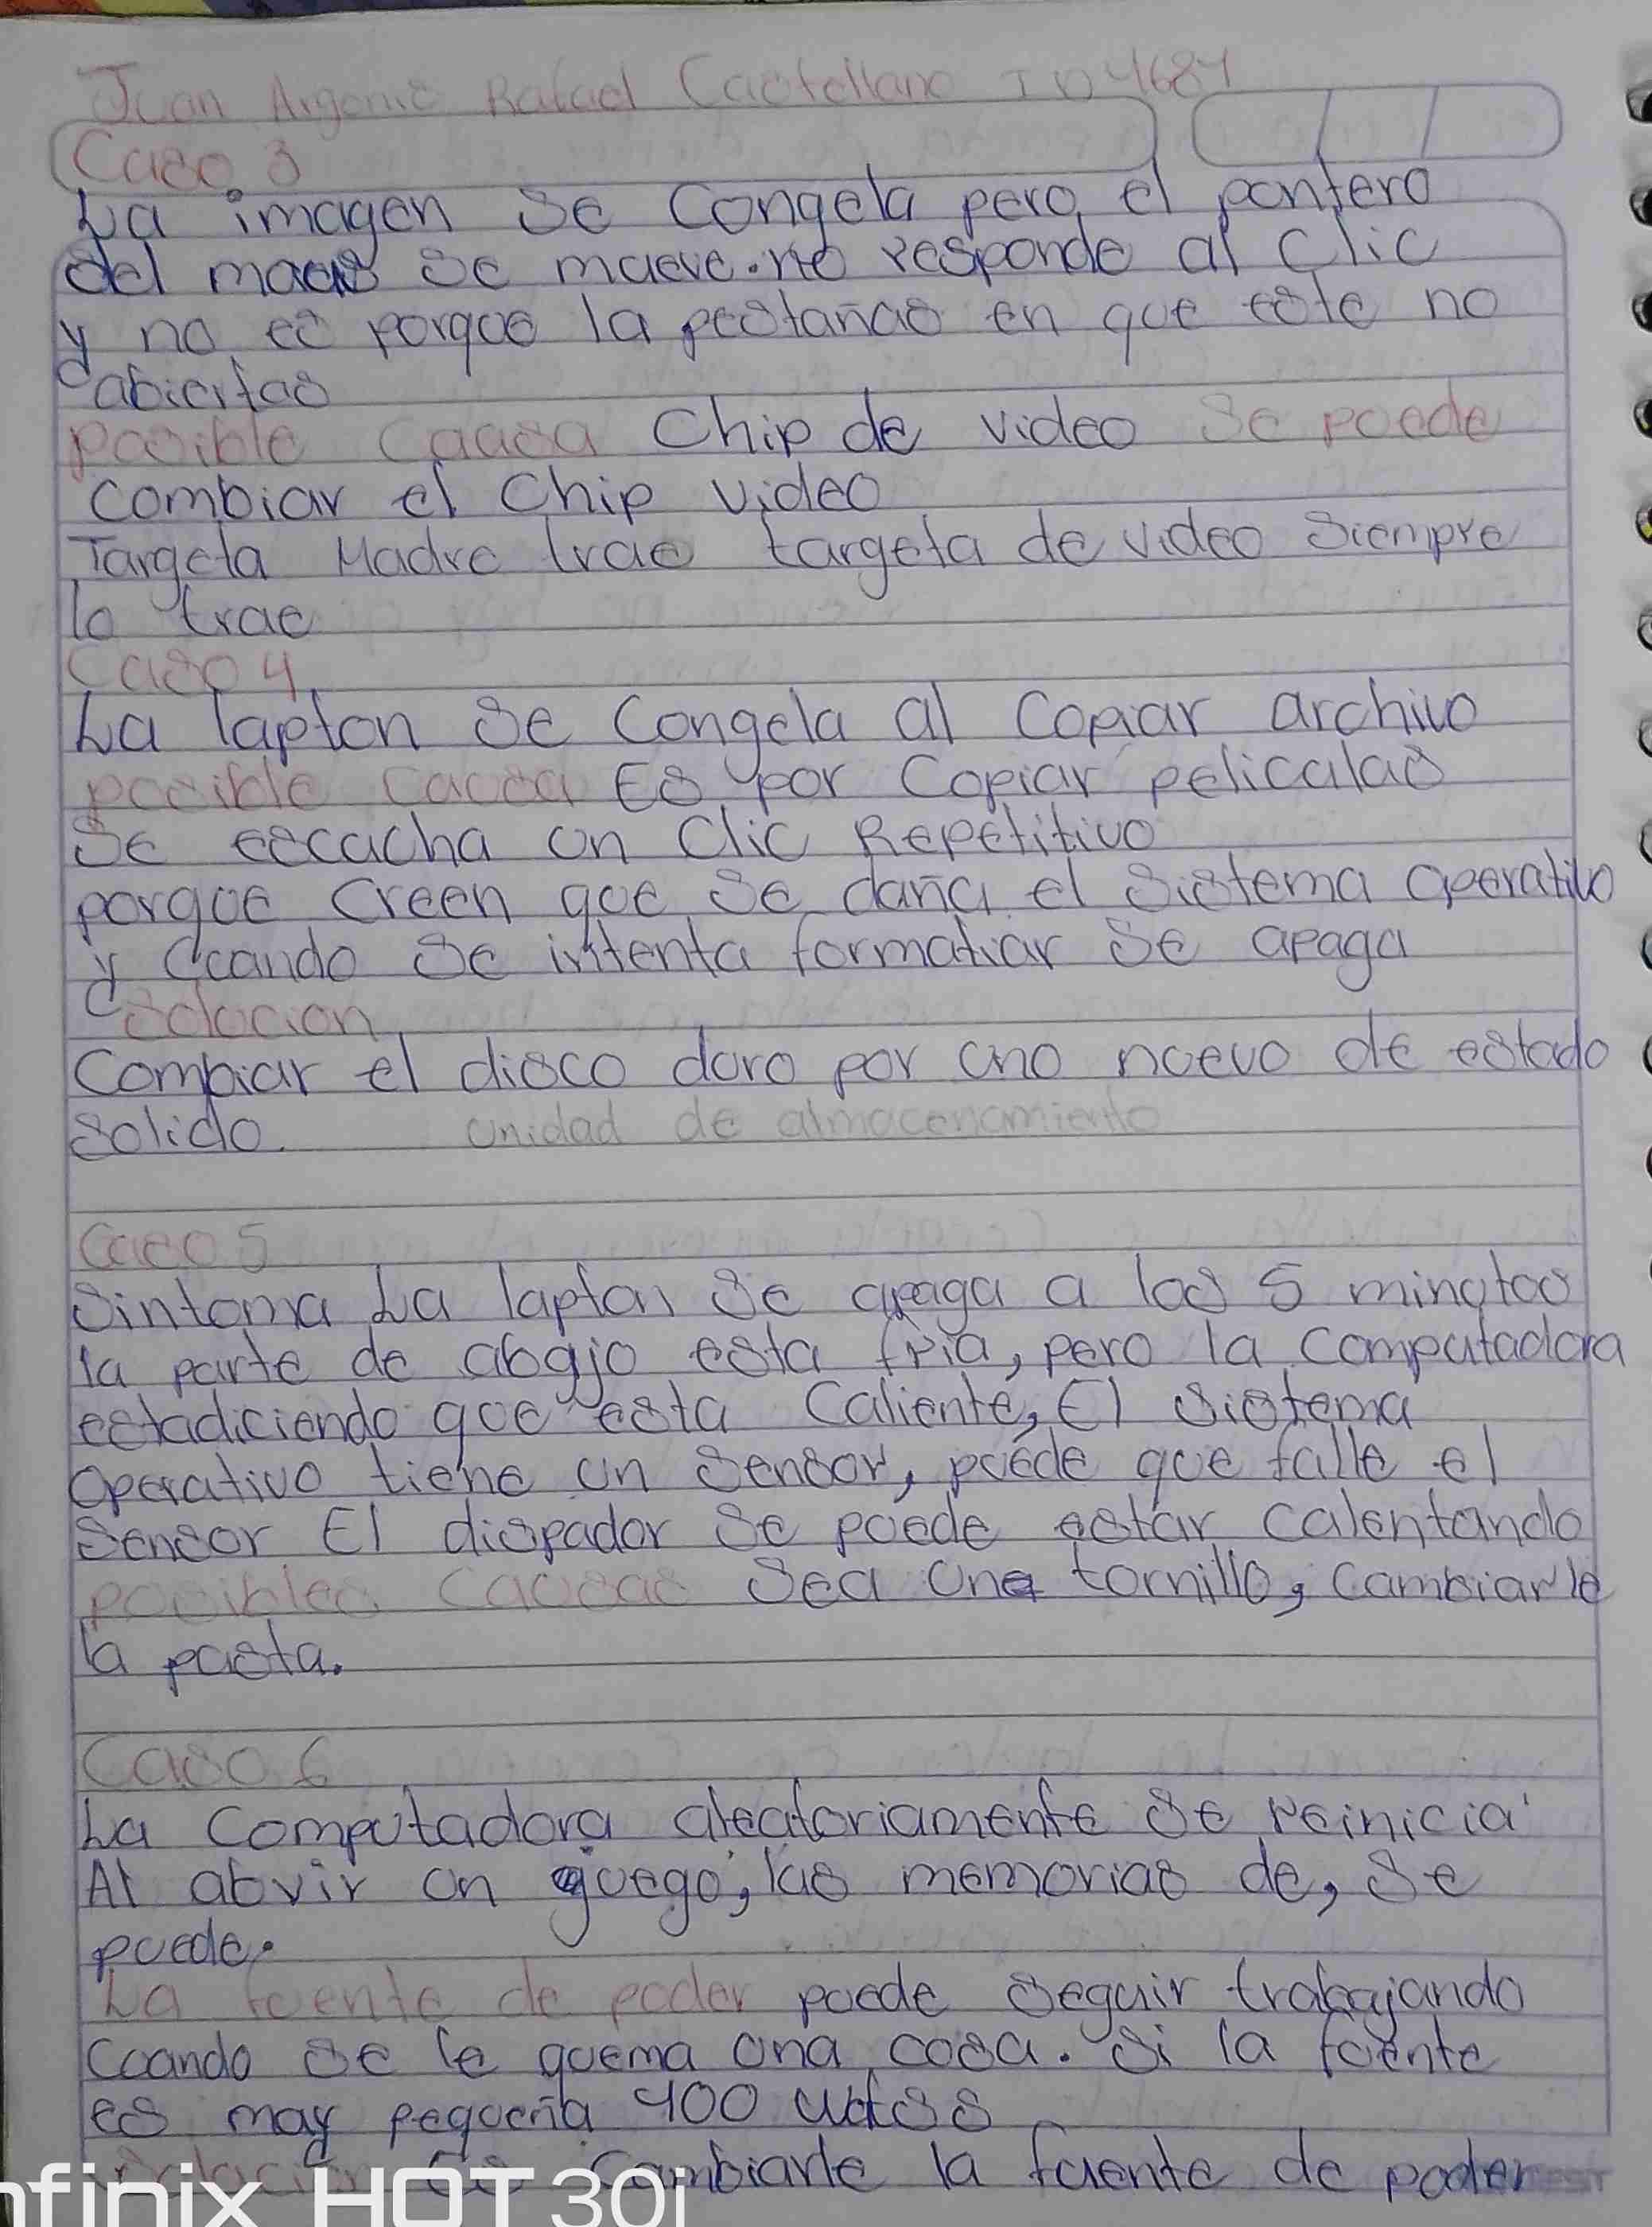 Juan Argenis Rafael Castellano ID 4684
Caso 3
La imagen se congela pero el pontero
del maus se mueve. no responde al clic
y no es porque la pestañas en que este no
abiertas
posible causa Chip de video se puede
combiar el Chip video
Targeta Madre trae targeta de video siempre
lo trae
Caso 4
La lapton se congela al copiar archivo
posible causa Es por copiar peliculas
Se escucha un Clic Repetitivo
porque creen que se daña el sistema operativo
y cuando se intenta formatiar se apaga
solucion
Combiar el disco duro por uno nuevo de estado
solido. unidad de almacenamiento
Caso 5
Sintoma La lapton se apaga a los 5 minutos
la parte de abajo esta fria, pero la computadora
estadiciendo que esta Caliente, El sistema
operativo tiene un sensor, puede que falle el
sensor El disipador se puede estar calentando
posibles causas sea une tornillo, cambiarle
la pasta.
Caso 6
La computadora aleatoriamente se reinicia
Al abrir un juego, las memorias de, se
puede.
La fuente de poder puede seguir trabajando
Cuando se le quema una cosa. Si la fuente
es muy pequeña 400 watss
solucion Es Cambiarle la fuente de poder
nfinix HOT 30i